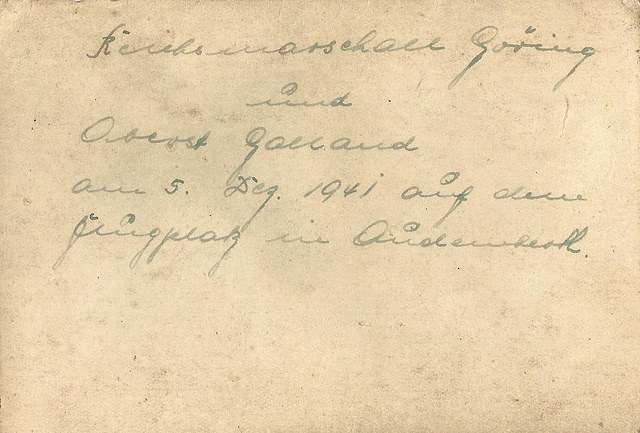 Reichsmarschall Göring
und
Oberst Galland
am 5. Dez. 1941 auf dem
Flugplatz in Audembert.